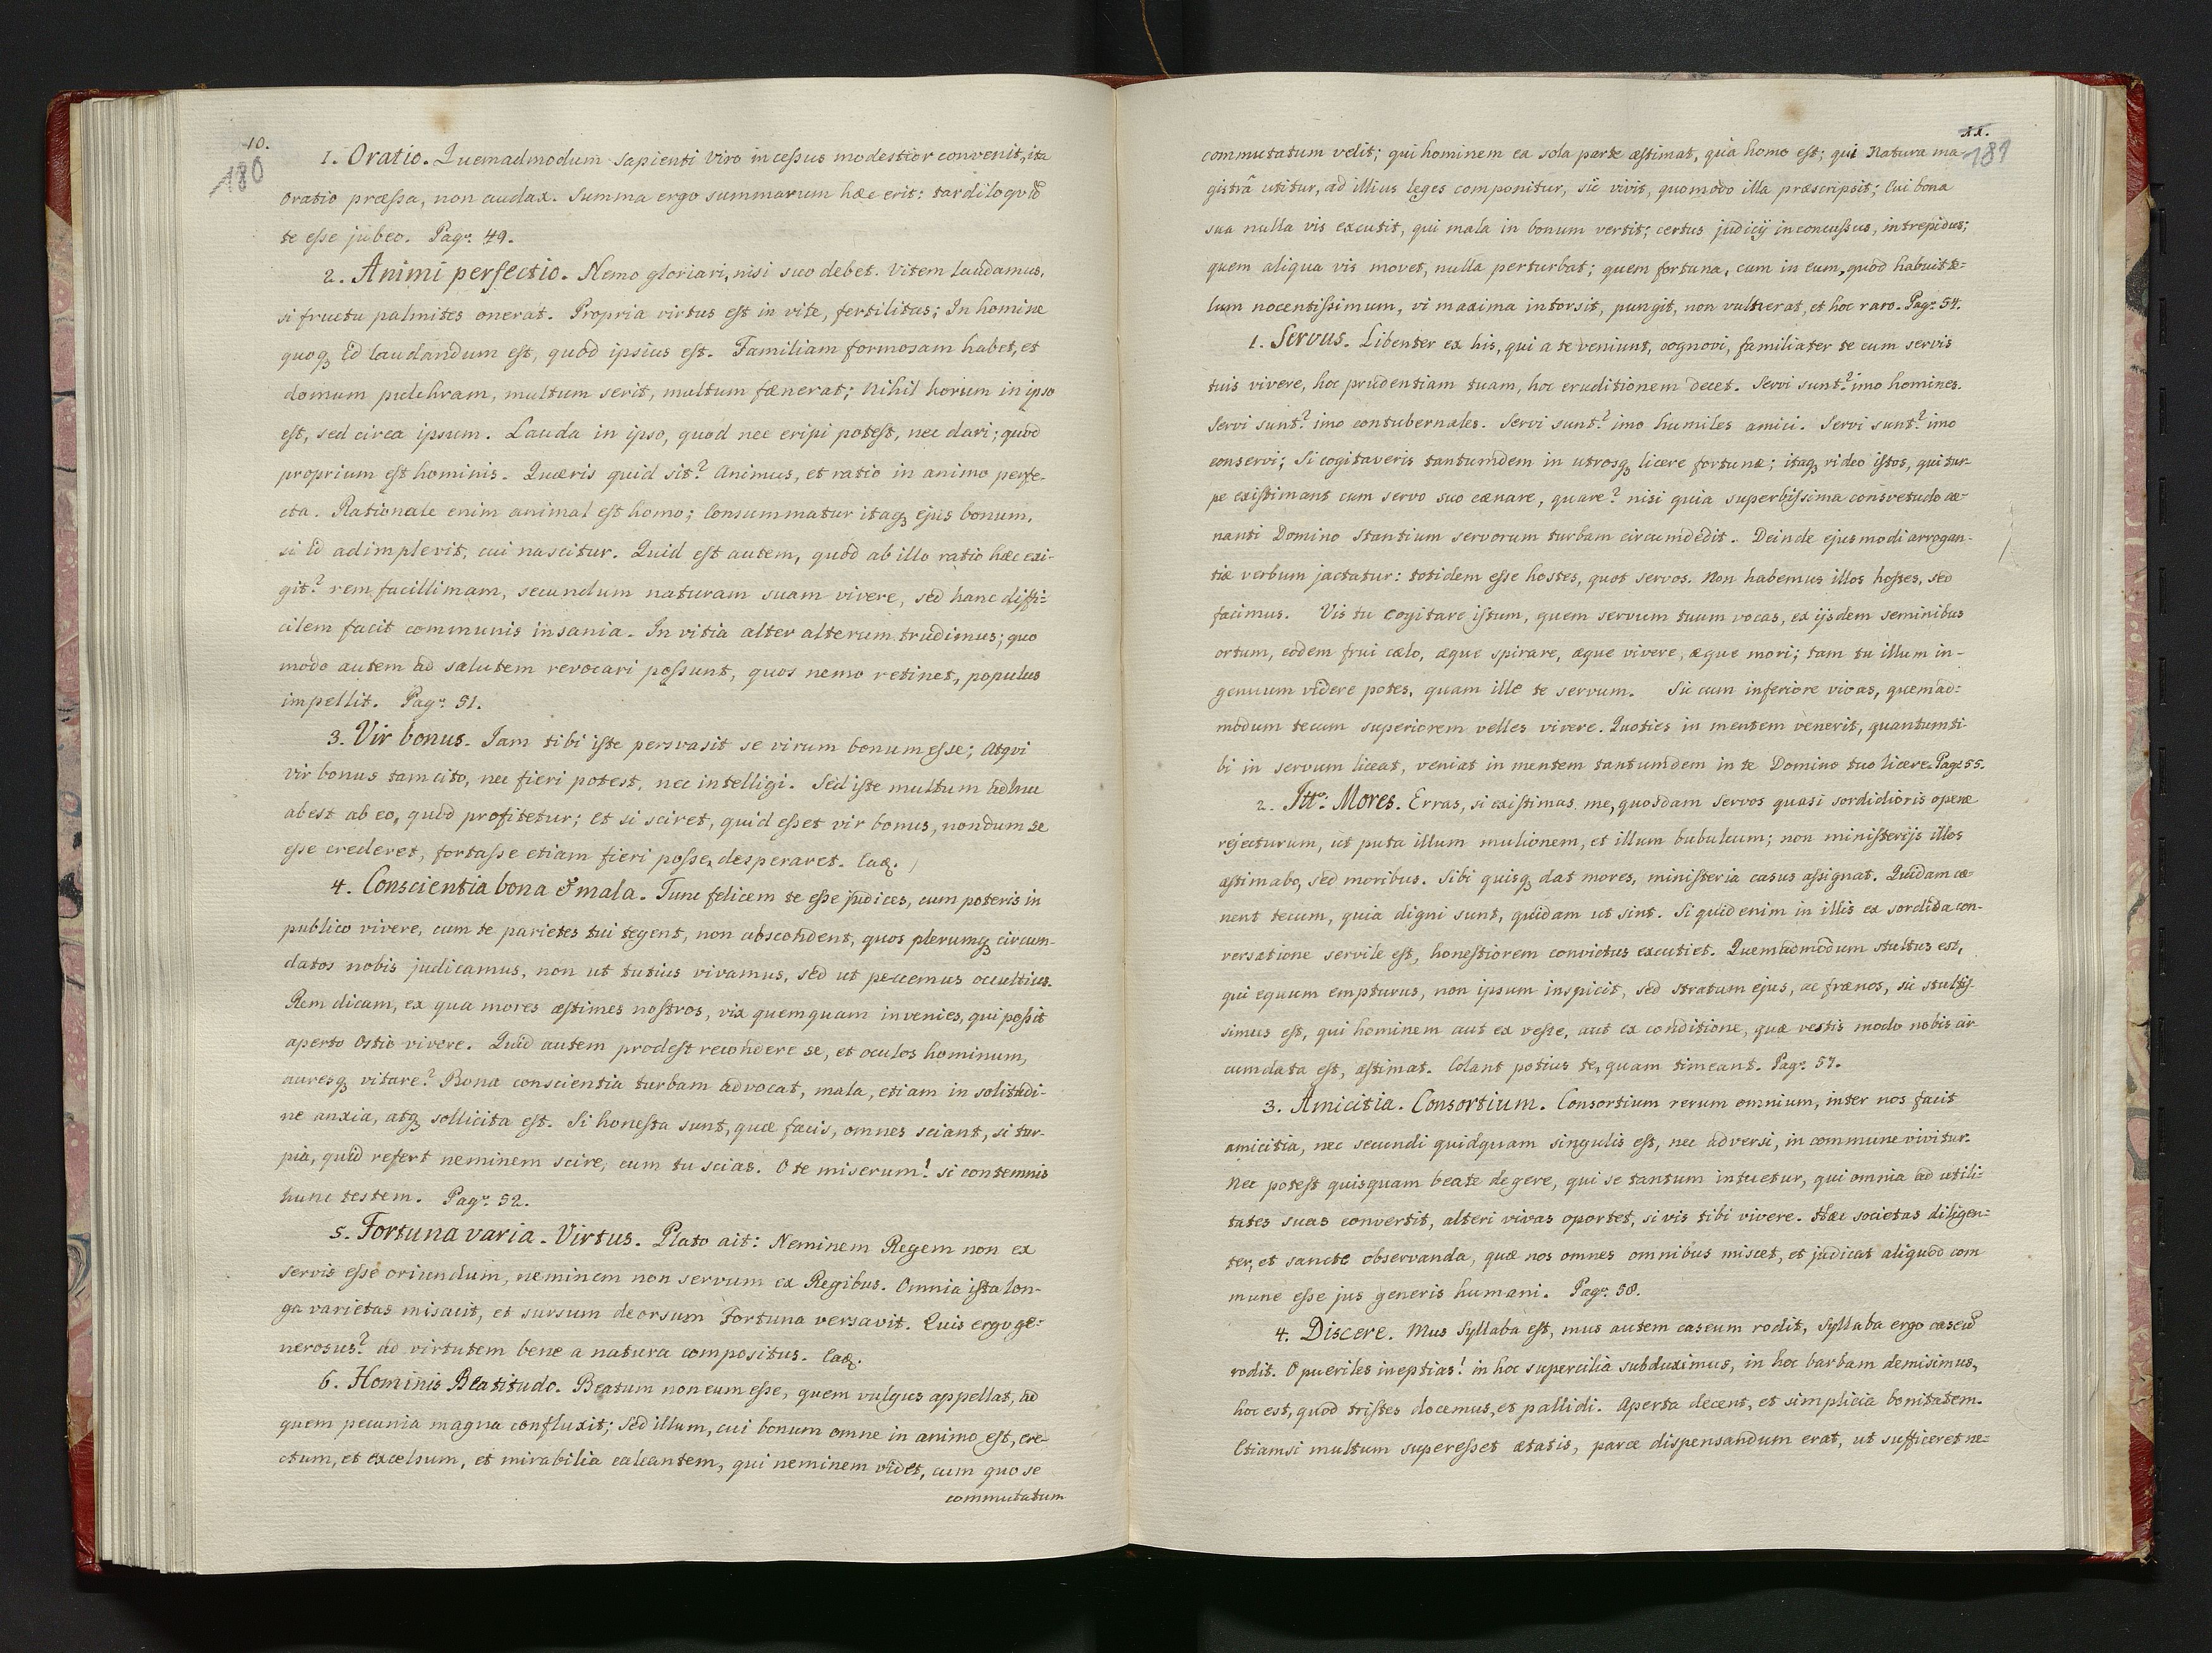 10.
180
1. Oratio. Quemadmodum sapienti viro incessus modestior convenit, ita
oratio præssa, non audax. Summa ergo summarum hæc erit: tardiloqvū
te esse jubeo. Pag: 49.
2. Animi perfectio. Nemo gloriari, nisi suo debet. Vitem laudamus,
si fructu palmites onerat. Propria virtus est in vite, fertilitas; In homine
quoq3 id laudandum est, quod ipsius est. Familiam formosam habet, et
domum pulchram, multum serit, multum fænerat; Nihil horum in ipso
est, sed circa ipsum. Lauda in ipso, quod nec eripi potest, nec dari; quod
proprium est hominis. Quæris quid sit? Animus, et ratio in animo perfe-
cta. Rationale enim animal est homo; Consummatur itaq3 ejus bonum,
si id adimplevit, cui nascitur. Quid est autem, quod ab illo ratio hæc exi-
git? rem facillimam, secundum naturam suam vivere, sed hanc diffi-
cilem facit communis insania. In vitia alter alterum trudimus; quo
modo autem ad salutem revocari possunt, quos nemo retinet, populus
impellit. Pag: 51.
3. Vir bonus. Iam tibi iste persvasit se virum bonum esse; Atqvi
vir bonus tam cito, nec fieri potest, nec intelligi. Sed iste multum adhuc
abest ab eo, quod profitetur; et si sciret, quid esset vir bonus, nondum se
esse crederet, fortasse etiam fieri posse, desperaret. Eaq3.
4. Conscientia bona & mala. Tunc felicem te esse judices, cum poteris in
publico vivere, cum te parietes tui tegent, non abscondent, quos plerumq3 circum-
datos nobis judicamus, non ut tutius vivamus, sed ut peccemus occultius.
Rem dicam, ex qua mores æstimes nostros, vix quemquam invenies, qui possit
aperto ostio vivere. Quid autem prodest recondere se, et oculos hominum,
auresq3 vitare? Bona conscientia turbam advocat, mala, etiam in solitudi-
ne anxia, atq3 sollicita est. Si honesta sunt, quæ facis, omnes sciant, si tur-
pia, quid refert neminem scire, cum tu scias. O te miserum! si contemnis
hunc testem. Pag: 52.
5. Fortuna varia. Virtus. Plato ait: Neminem Regem non ex
servis esse oriundum, neminem non servum ex Regibus. Omnia ista lon-
ga varietas miscuit, et sursum deorsum Fortuna versavit. Quis ergo ge-
nerosus? ad virtutem bene a natura compositus. Eaq3.
6. Hominis Beatitudo. Beatum non eum esse, quem vulgus appellat, ad
quem pecunia magna confluxit; sed illum, cui bonum omne in animo est, ere-
ctum, et excelsum, et mirabilia calcantem, qui neminem videt, cum quo se
commutatum
11.
181
commutatum velit; qui hominem ea sola parte æstimat, qua homo est; qui Natura ma-
gistrâ utitur, ad illius leges componitur, sic vivit, quomodo illa præscripsit; Cui bona
sua nulla vis excutit, qui mala in bonum vertit; certus judicij inconcussus, intrepidus;
quem aliqua vis movet, nulla perturbat; quem fortuna, cum in eum, quod habuit te-
lum nocentissimum, vi maxima intorsit, pungit, non vulnerat, et hoc raro. Pag: 54.
1. Servus. Libenter ex his, qui a te veniunt, cognovi, familiater te cum servis
tuis vivere, hoc prudentiam tuam, hoc eruditionem decet. Servi sunt? imo homines.
Servi sunt? imo contubernales. Servi sunt? imo humiles amici. Servi sunt? imo
conservi; Si cogitaveris tantumdem in utrosq3 licere fortunæ; itaq3 rideo istos, qui tur-
pe existimant cum servo suo cænare, quare? nisi quia superbissima consvetudo cæ-
nanti Domino stantium servorum turbam circumdedit. Deinde ejusmodi arrogan-
tiæ verbum jactatur: totidem esse hostes, quot servos. Non habemus illos hostes, sed
facimus. Vis tu cogitare istum, quem servum tuum vocas, ex ijsdem seminibus
ortum, eodem frui cælo, æque spirare, æque vivere, æque mori; tam tu illum in-
genuum videre potes, quam ille te servum. Sic cum inferiore vivas, quemad-
modum tecum superiorem velles vivere. Quoties in mentem venerit, quantum ti-
bi in servum liceat, veniat in mentem tantumdem in te Domino tuo licere. Pag: 55.
2. Itt: Mores. Erras, si existimas me, quosdam servos quasi sordidioris operæ
rejecturum, ut puta illum mulionem, et illum bubulcum; non ministerijs illos
æstimabo, sed moribus. Sibi quisq3 dat mores, ministeria casus assignat. Quidam cæ-
nent tecum, quia digni sunt, quidam ut sint. Si quid enim in illis ex sordida con-
versatione servile est, honestiorem convictus excutiet. Quemadmodum stultus est,
qui equum empturus, non ipsum inspicit, sed stratum ejus, ac frænos, sic stultis-
simus est, qui hominem aut ex veste, aut ex conditione, quæ vestis modo nobis cir-
cumdata est, æstimat. Colant potius te, quam timeant. Pag: 57.
3. Amicitia. Consortium. Consortium rerum omnium, inter nos facit
amicitia, nec secundi quidquam singulis est, nec adversi, in commune vivitur.
Nec potest quisquam beate degere, qui se tantum intuetur, qui omnia ad utili-
tates suas convertit, alteri vivas oportet, si vis tibi vivere. Hæc societas diligen-
ter, et sancte observanda, quæ nos omnes omnibus miscet, et judicat aliquod com
mune esse jus generis humani. Pag: 58.
4. Discere. Mus Syllaba est, mus autem caseum rodit, Syllaba ergo caseū
rodit. O pueriles ineptias! in hoc supercilia subduximus, in hoc barbam demisimus,
hoc est, quod tristes docemus, et pallidi. Aperta decent, et simplicia bonitatem.
Etiamsi multum superesset ætatis, parce dispensandum erat, ut sufficeret ne-